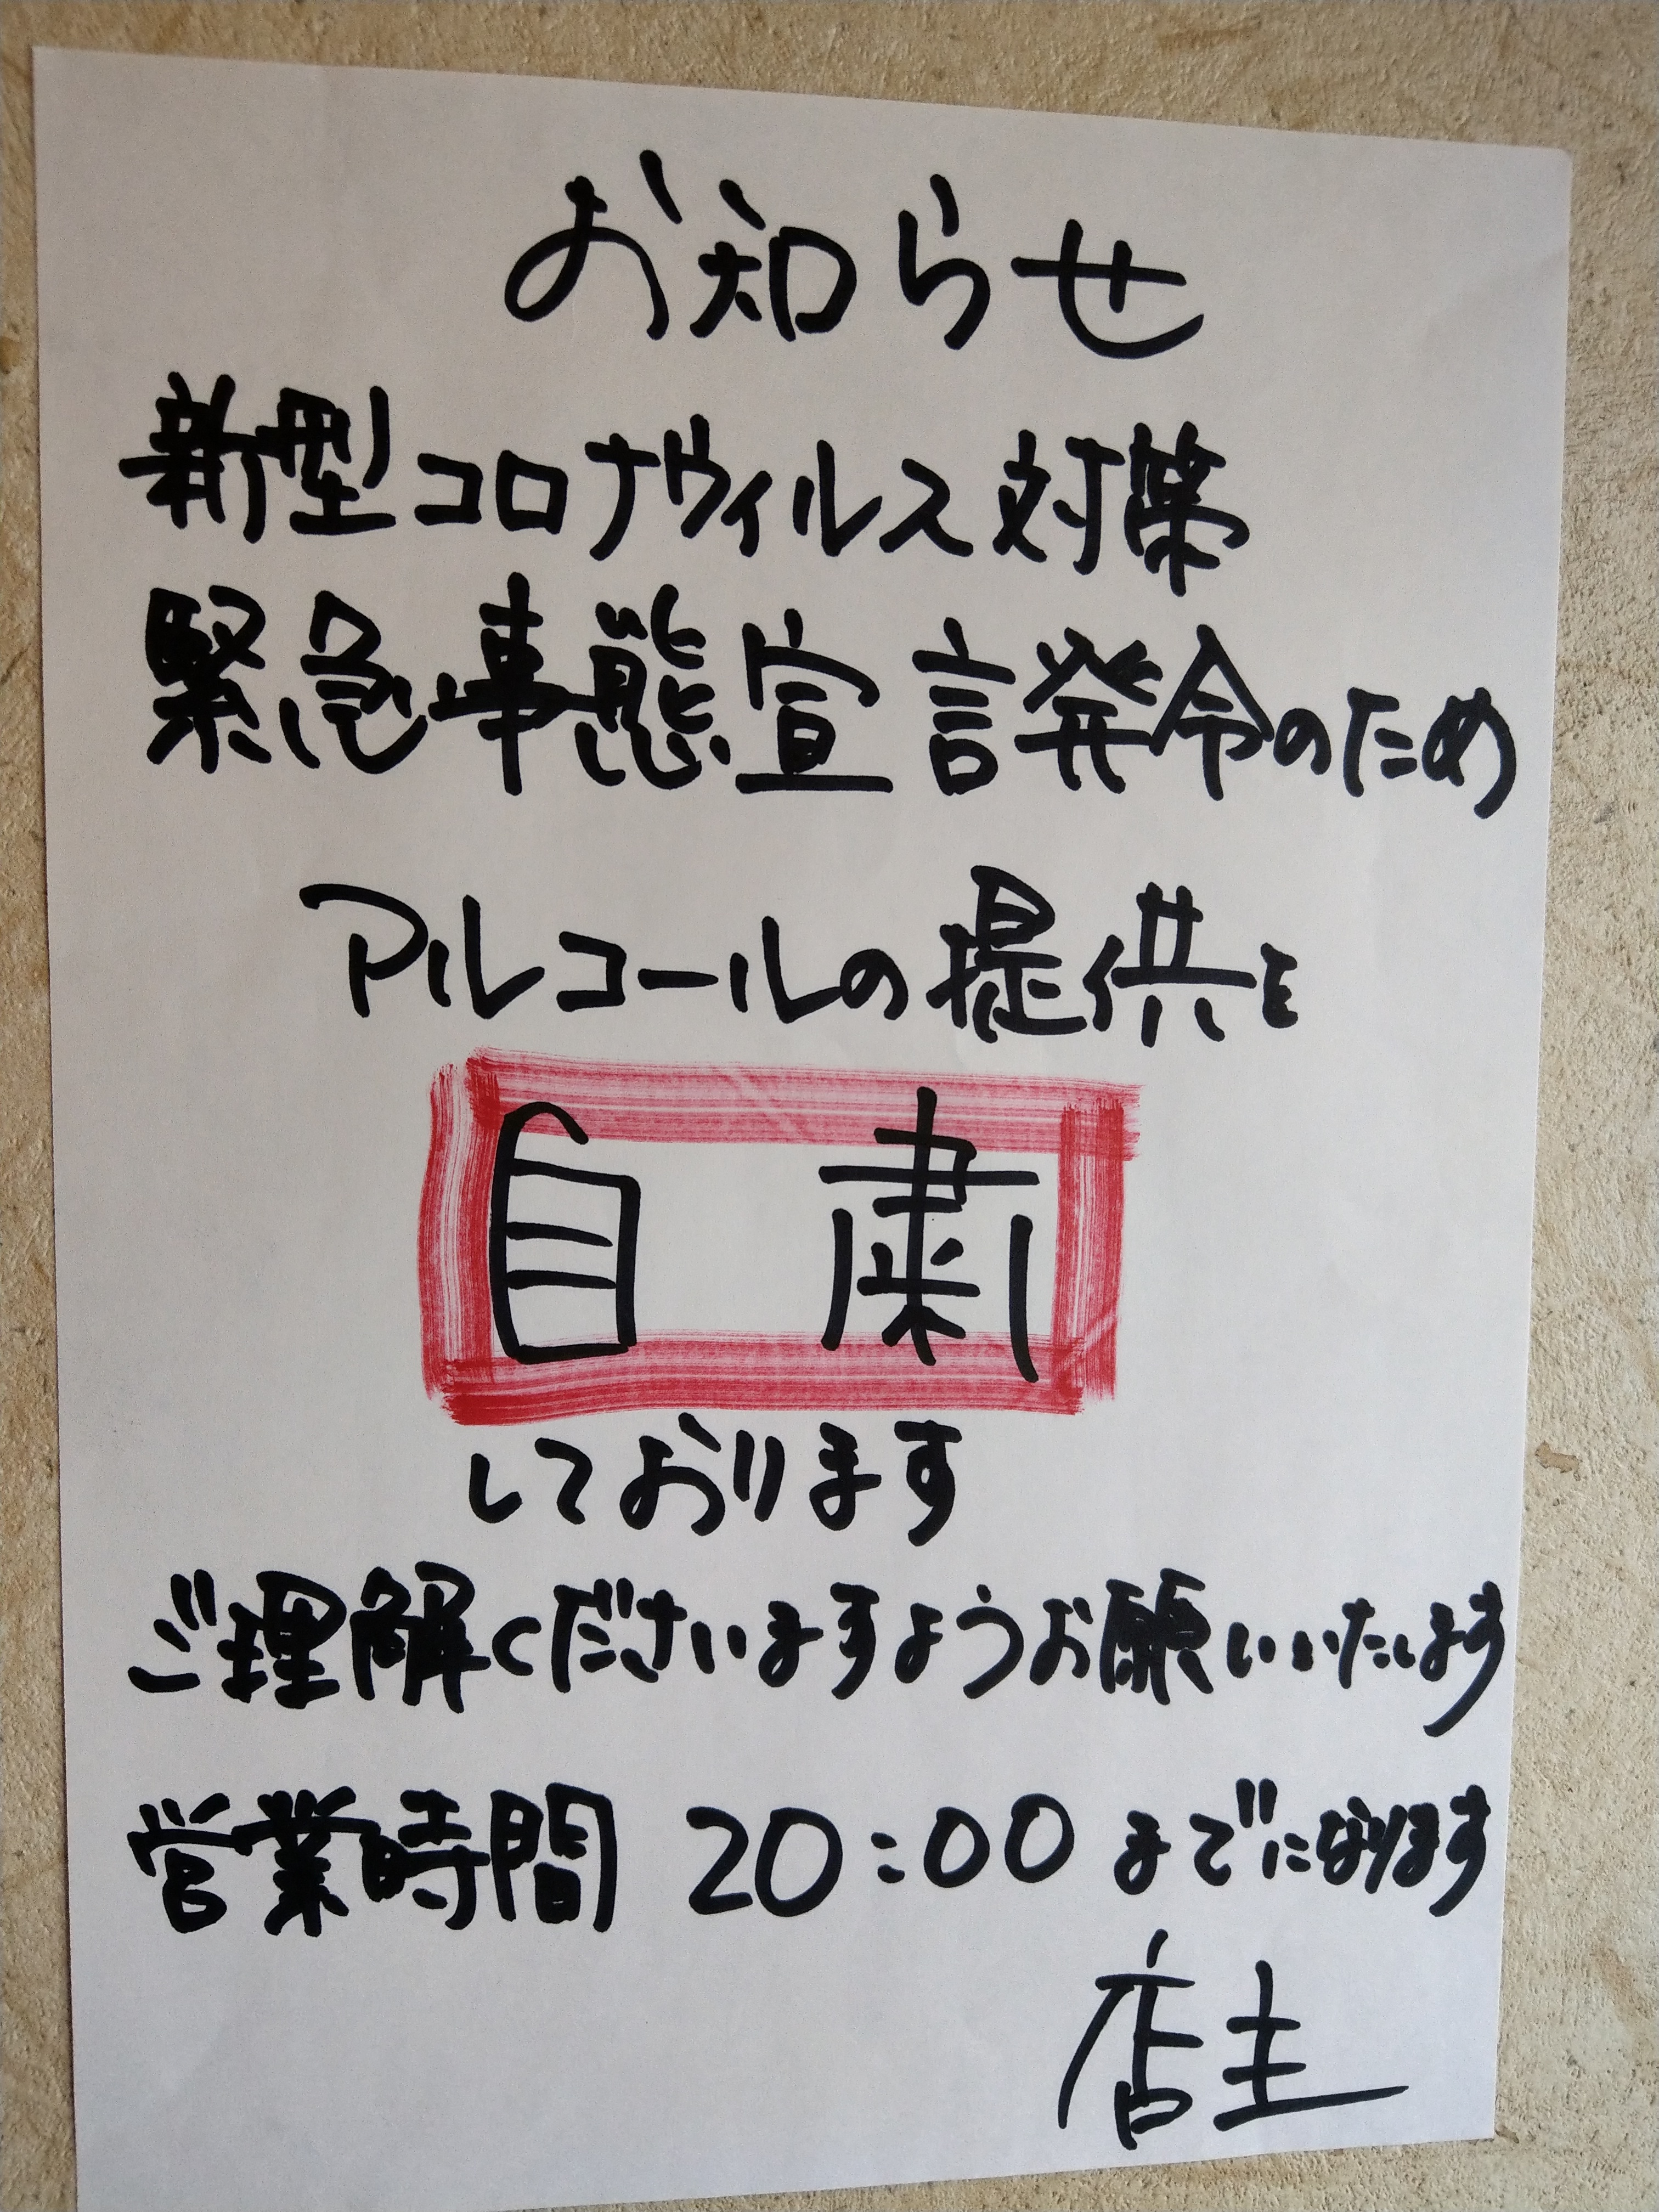 お知らせ
新型コロナウィルス対策
緊急事態宣言発令のため
アルコールの提供を
自粛
しております
ご理解くださいますようお願いいたします
営業時間 20:00 までになります
店主